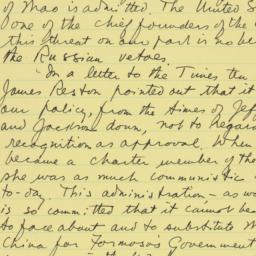 of Mao is admitted. The United S
one of the chief founders of the
this threat on our part is no be
the Russian vetoes.
"In a letter to the Times ten
James Reston pointed out that it
our policy, from the times of Jeff
and Jackson down, not to regard
recognition as approval. When
became a charter member of the
she was as much communistic
to-day. This administration – as wa
is so committed that it cannot bea
to face about and to substitute M
China for Formosa's Government